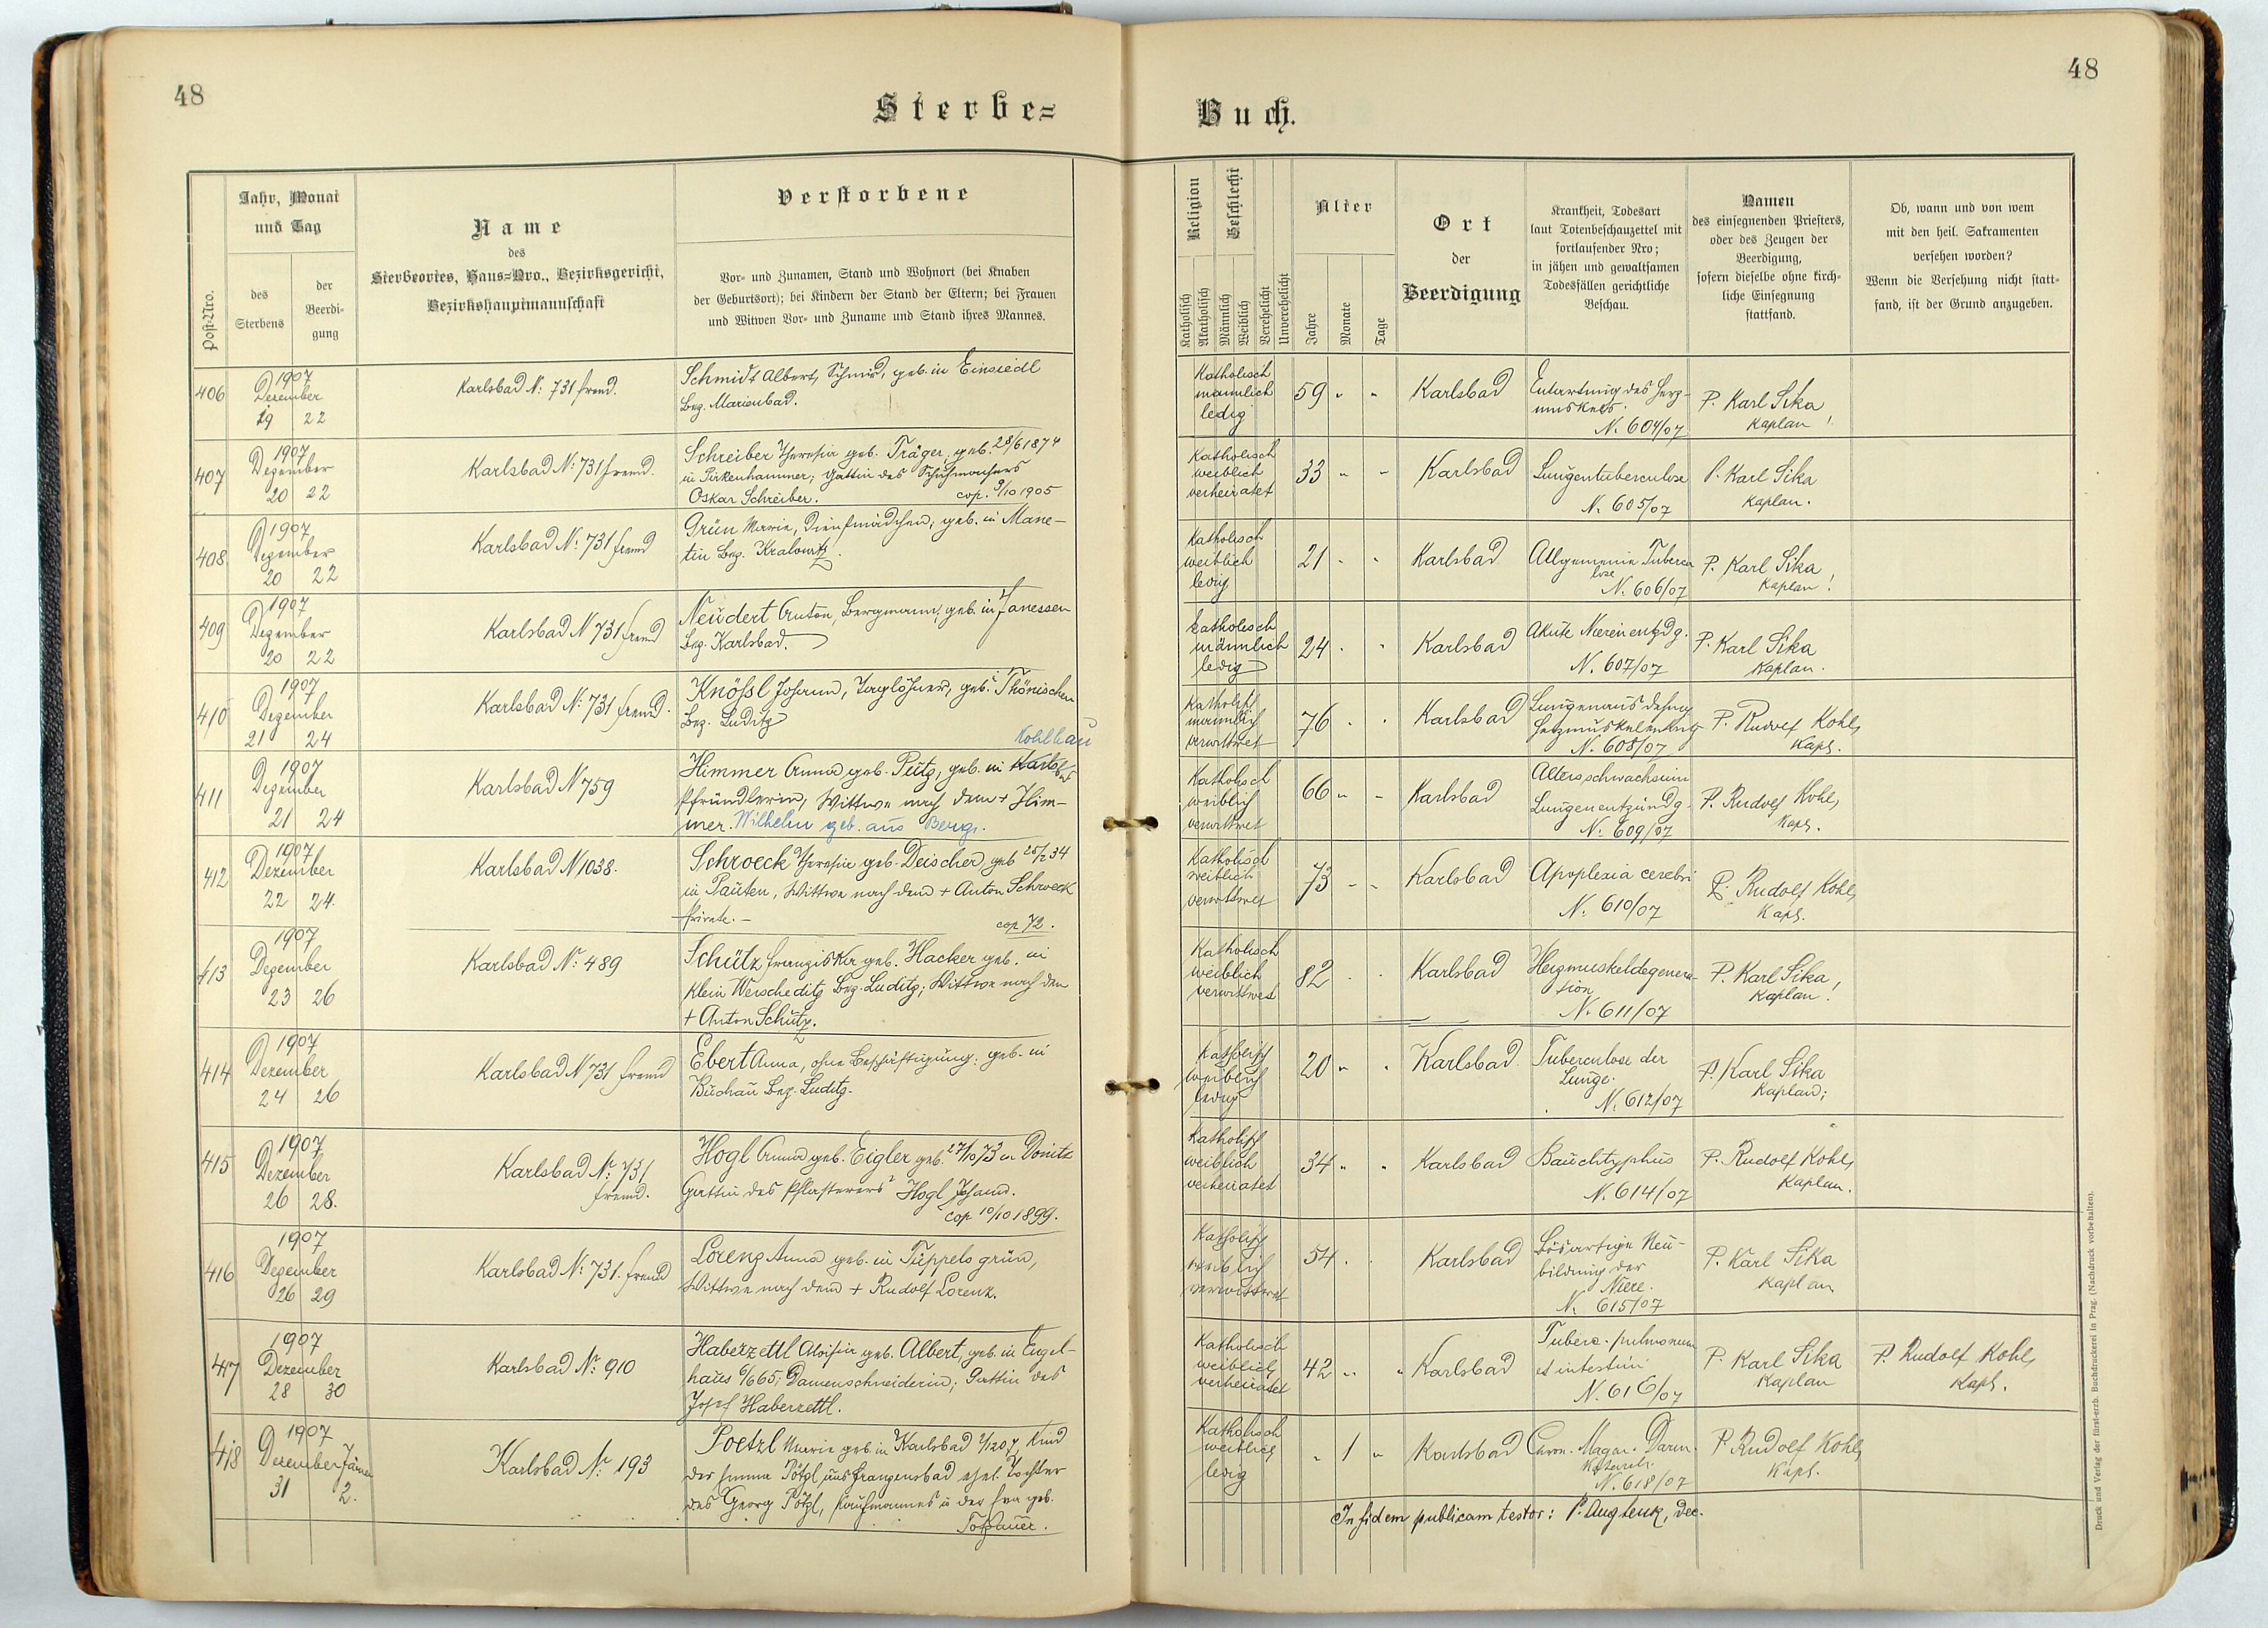 48
48
Sterbe=
Buch.
Post-Nro.
Jahr, Monat
und Tag
des
Sterbens
der
Beerdi-
gung
Name
des
Sterbeortes, Haus=Nro., Bezirksgericht,
Bezirkshauptmannschaft
Verstorbene
Vor- und Zunamen, Stand und Wohnort (bei Knaben
der Geburtsort); bei Kindern der Stand der Eltern; bei Frauen
und Witwen Vor- und Zuname und Stand ihres Mannes.
Religion
Katholisch
Akatholisch
Geschlecht
Männlich
Weiblich
Verehelicht
Unverehelicht
Alter
Jahre
Monate
Tage
Ort
der
Beerdigung
Krankheit, Todesart
laut Totenbeschauzettel mit
fortlaufender Nro;
in jähen und gewaltsamen
Todesfällen gerichtliche
Beschau.
Namen
des einsegnenden Priesters,
oder des Zeugen der
Beerdigung,
sofern dieselbe ohne kirch-
liche Einsegnung
stattfand.
Ob, wann und von wem
mit den heil. Sakramenten
versehen worden?
Wenn die Versehung nicht statt-
fand, ist der Grund anzugeben.
406
1907
Dezember
19 22
Karlsbad N: 731 fremd.
Schmidt Albert, Schmid, geb. in Einsiedl
Bez. Marienbad.
Katholisch
männlich
ledig
59 " "
Karlsbad
Entartung des Herz-
muskels.
N. 604/07
P. Karl Sika
Kaplan!
407
1907
Dezember
20 22
Karlsbad N: 731 fremd.
Schreiber Theresia geb. Träger, geb. 28/6 1874
in Pirkenhammer, Gattin des Schuhmachers
Oskar Schreiber. cop. 9/10 1905
Katholisch
weiblich
verheiratet
33 " "
Karlsbad
Lungentuberculose
N. 605/07
P. Karl Sika
Kaplan.
408
1907
Dezember
20 22
Karlsbad N: 731 fremd
Grün Marie, Dienstmädchen, geb. in Mane-
tin Bez. Kralowitz.
Katholisch
weiblich
ledig
21 " "
Karlsbad
Allgemeine Tubercu
lose
N. 606/07
P. Karl Sika
Kaplan!
409
1907
Dezember
20 22
Karlsbad N 731 fremd
Neudert Anton, Bergmann, geb. in Janessen
Bez. Karlsbad.
Katholisch
männlich
ledig
24 " "
Karlsbad
Akute Nierenentzdg.
N. 607/07
P. Karl Sika
Kaplan.
410
1907
Dezember
21 24
Karlsbad N: 731 fremd.
Knößl Johann, Taglöhner, geb. i Thönischen
Bez. Luditz
Katholisch
männlich
verwittwet
76 " "
Karlsbad
Lungenausdehng
Herzmuskelentartg
N. 608/07
P. Rudolf Kohl,
Kapl.
411
1907
Dezember
21 24
Karlsbad N 759
Kohlhau
Himmer Anna geb. Pütz, geb. in Karlsbad
Pfründlerin, Wittwe nach dem + Him-
mer. Wilhelm geb. aus Berg.
Katholisch
weiblich
verwittwet
66 " "
Karlsbad
Altersschwachsinn
Lungenentzündg.
N. 609/07
P. Rudolf Kohl,
Kapl.
412
1907
Dezember
22 24.
Karlsbad N 1038.
Schroeck Theresia geb. Deischer, geb 25/2 34
in Pauten, Wittwe nach dem + Anton Schroeck
Private. — cop 72.
Katholisch
weiblich
verwittwet
73 " "
Karlsbad
Apoplexia cerebri
N. 610/07
P. Rudolf Kohl,
Kapl.
413
1907
Dezember
23 26
Karlsbad N: 489
Schütz Franziska geb. Hacker geb. in
Klein Werscheditz Bez. Luditz; Wittwe nach dem
+ Anton Schütz.
Katholisch
weiblich
verwittwet
82 " "
Karlsbad
Herzmuskeldegenera-
tion
N. 611/07
P. Karl Sika,
Kaplan!
414
1907
Dezember
24 26
Karlsbad N 731 fremd
Ebert Anna, ohne Beschäftigung: geb. in
Buchau Bez. Luditz.
Katholisch
weiblich
ledig
20 " "
Karlsbad
Tuberculose der
Lunge.
N. 612/07
P. Karl Sika
Kaplan;
415
1907
Dezember
26 28.
Karlsbad N: 731
fremd.
Hogl Anna geb. Eigler geb. 27/10 73 in Donitz
Gattin des Pflasterers Hogl Johann.
cop 10/10 1899.
Katholisch
weiblich
verheiratet
34 " "
Karlsbad
Bauchtyphus
N. 614/07
P. Rudolf Kohl,
Kaplan.
416
1907
Dezember
26 29
Karlsbad N: 731. fremd
Lorenz Anna geb. in Tüppelsgrün,
Wittwe nach dem + Rudolf Lorenz.
Katholisch
weiblich
verwittwet
54 " "
Karlsbad
Bösartige Neu-
bildung der
Niere.
N. 615/07
P. Karl Sika
Kaplan
417
1907
Dezember
28 30
Karlsbad N: 910
Haberzettl Aloisia geb. Albert, geb. in Engel-
haus 6/6 65; Damenschneiderin; Gattin des
Josef Haberzettl.
Katholisch
weiblich,
verheiratet
42 " "
Karlsbad
Tuberc. pulmonum
et intestin
N. 616/07
P. Karl Sika
Kaplan
P. Rudolf Kohl,
Kapl.
418
1907
Dezember Jänner
31 2.
Karlsbad N: 193
Poetzl Marie geb. in Karlsbad 2/12 07, Kind
der Emma Pötzl aus Franzensbad ehel. Tochter
des Georg Pötzl, Kaufmannes u. der Eva geb.
Toßauer.
Katholisch
weiblich
ledig
" 1 "
Karlsbad
Chron. Magen. Darm.
Katarrh.
N. 618/07
P. Rudolf Kohl,
Kapl.
In fidem publicam testor: P. Aug Lenk, Dec.
Druck und Verlag der fürst-erzb. Buchdruckerei in Prag. (Nachdruck vorbehalten).